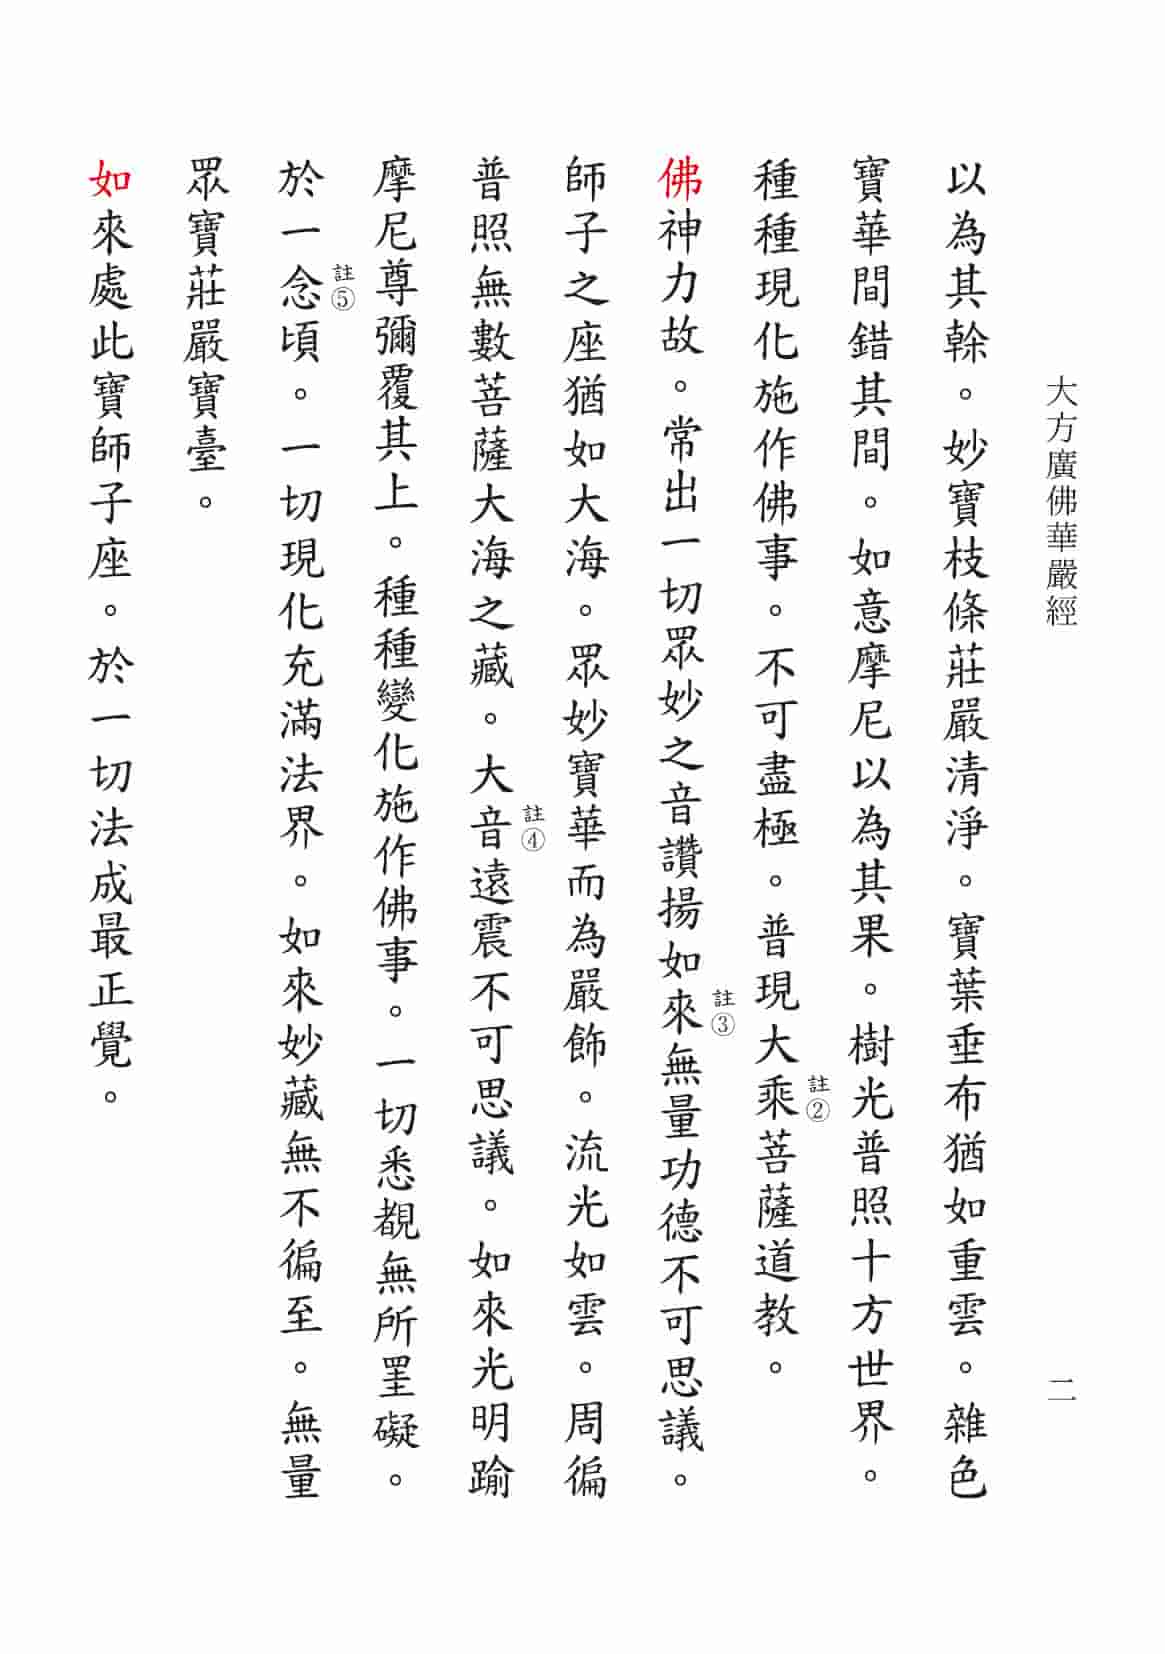 大方廣佛華嚴經
二
以為其榦。妙寶枝條莊嚴清淨。寶葉垂布猶如重雲。雜色
寶華間錯其間。如意摩尼以為其果。樹光普照十方世界。
種種現化施作佛事。不可盡極。普現大乘菩薩道教。
註②
佛神力故。常出一切眾妙之音讚揚如來無量功德不可思議。
註③
師子之座猶如大海。眾妙寶華而為嚴飾。流光如雲。周徧
普照無數菩薩大海之藏。大音遠震不可思議。如來光明踰
註④
摩尼尊彌覆其上。種種變化施作佛事。一切悉覩無所罣礙。
於一念頃。一切現化充滿法界。如來妙藏無不徧至。無量
註⑤
眾寶莊嚴寶臺。
如來處此寶師子座。於一切法成最正覺。